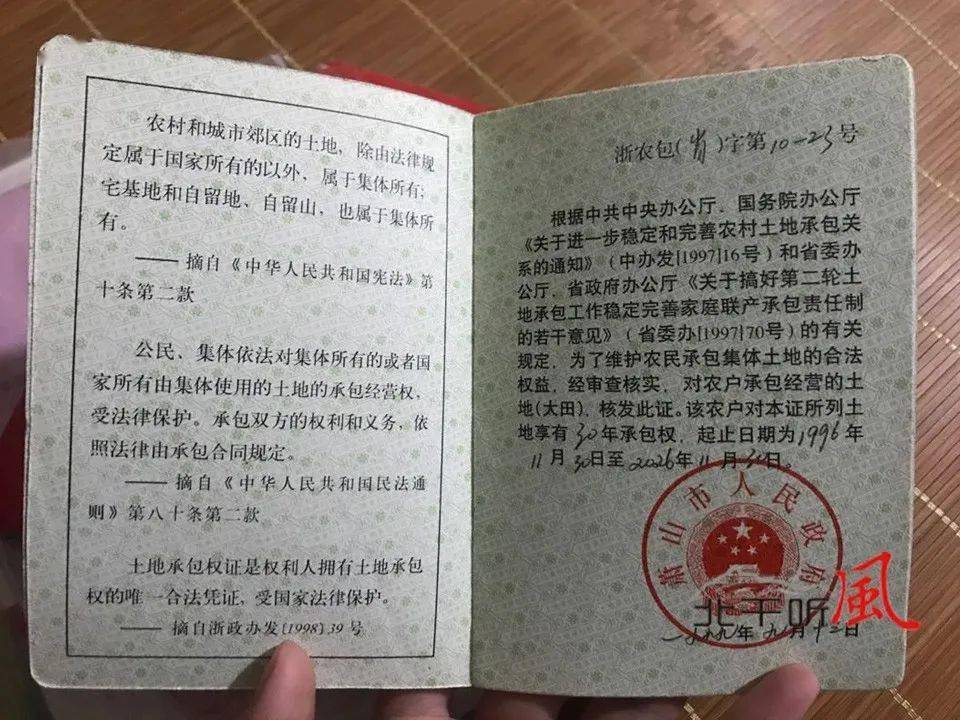 农村和城市郊区的土地，除由法律规
定属于国家所有的以外，属于集体所有；
宅基地和自留地、自留山，也属于集体所
有。
——摘自《中华人民共和国宪法》第
十条第二款
公民、集体依法对集体所有的或者国
家所有由集体使用的土地的承包经营权，
受法律保护。承包双方的权利和义务，依
照法律由承包合同规定。
——摘自《中华人民共和国民法通
则》第八十条第二款
土地承包权证是权利人拥有土地承包
权的唯一合法凭证，受国家法律保护。
——摘自浙政办发[1998]39号
浙农包(肖)字第10-23号
根据中共中央办公厅、国务院办公厅
《关于进一步稳定和完善农村土地承包关
系的通知》（中办发[1997]16号）和省委办
公厅、省政府办公厅《关于搞好第二轮土
地承包工作稳定完善家庭联产承包责任制
的若干意见》（省委办[1997]70号）的有关
规定，为了维护农民承包集体土地的合法
权益，经审查核实，对农户承包经营的土
地(大田)，核发此证。该农户对本证所列土
地享有30年承包权，起止日期为1996年
11月30日至2026年11月30日。
萧山市人民政府
北干听風
一九九九年九月十二日